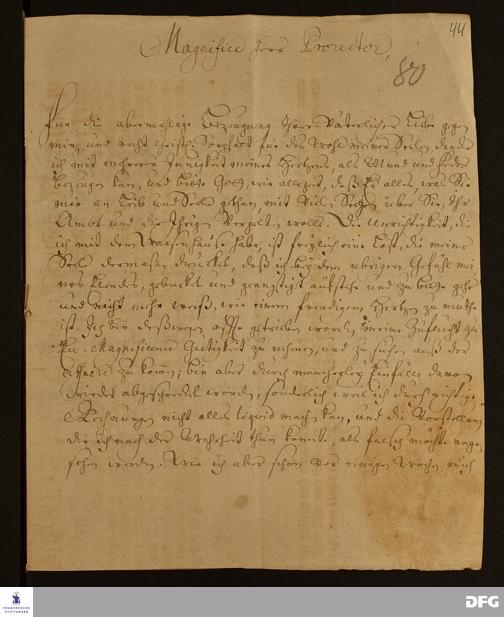 44
Magnifice Herr Prorector,
80
Für die abermahlige Bezeugung Ihrer Väterlichen Liebe gegen
mir, und recht christl. Sorgfalt für das Wohl meiner Seelen, dancke
ich mit mehrerer Innigkeit meines Hertzens, als Mund und Feder
bezeugen kan, und bitte Gott, wie allezeit, daß Er alles, was Sie
mir an Leib und Seel gethan, mit viel Segen über Sie, Ihr
Amt und die Ihrigen vergelten wolle. Die Unrichtigkeit, die
ich mit dem Waisenhause habe, ist freylich eine Last, die meine
Seele dermaßen drücket, daß ich bey dem übrigen Gefühl mei
nes Elendes, gebückt und geängstigt aufstehe und zu Bette gehe
und nicht mehr weiß, wie einem freudigen Hertzen zu muthe
ist. Ich bin deßwegen offt getrieben worden, meine Zuflucht zu
Eu. Magnificenz Gütigkeit zu nehmen, und zu suchen auß der
Affaire zu kommen; bin aber durch mancherley Einfälle davon
wieder abgeschreckt worden, sonderlich weil ich durch richtige
Rechnungen nicht alles liquid machen kan, und die Vorstellung
die ich nach der Wahrheit thun könnte, als falsch möchte ange
sehen werden. Wie ich aber schon vor einigen Wochen mich
FRANCKESCHE STIFTUNGEN
DFG